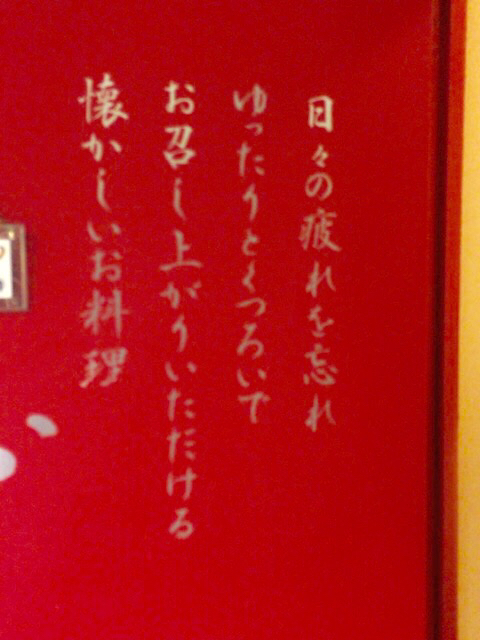 日々の疲れを忘れ
ゆったりとくつろいで
お召し上がりいただける
懐かしいお料理